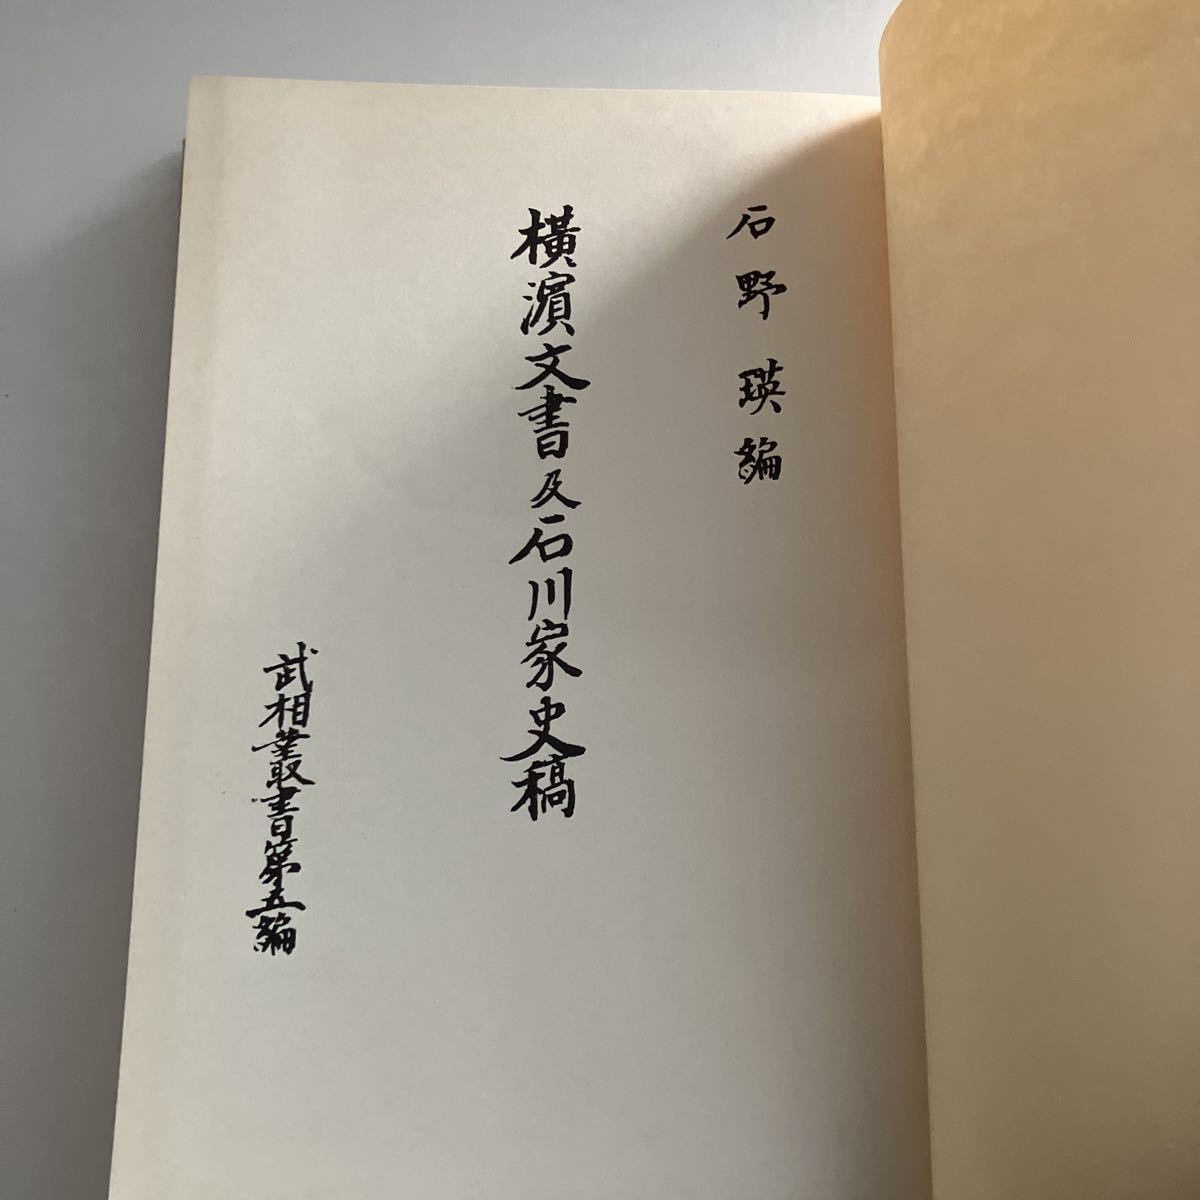 石野瑛編
橫濱文書及石川家史稿
武相叢書第五編